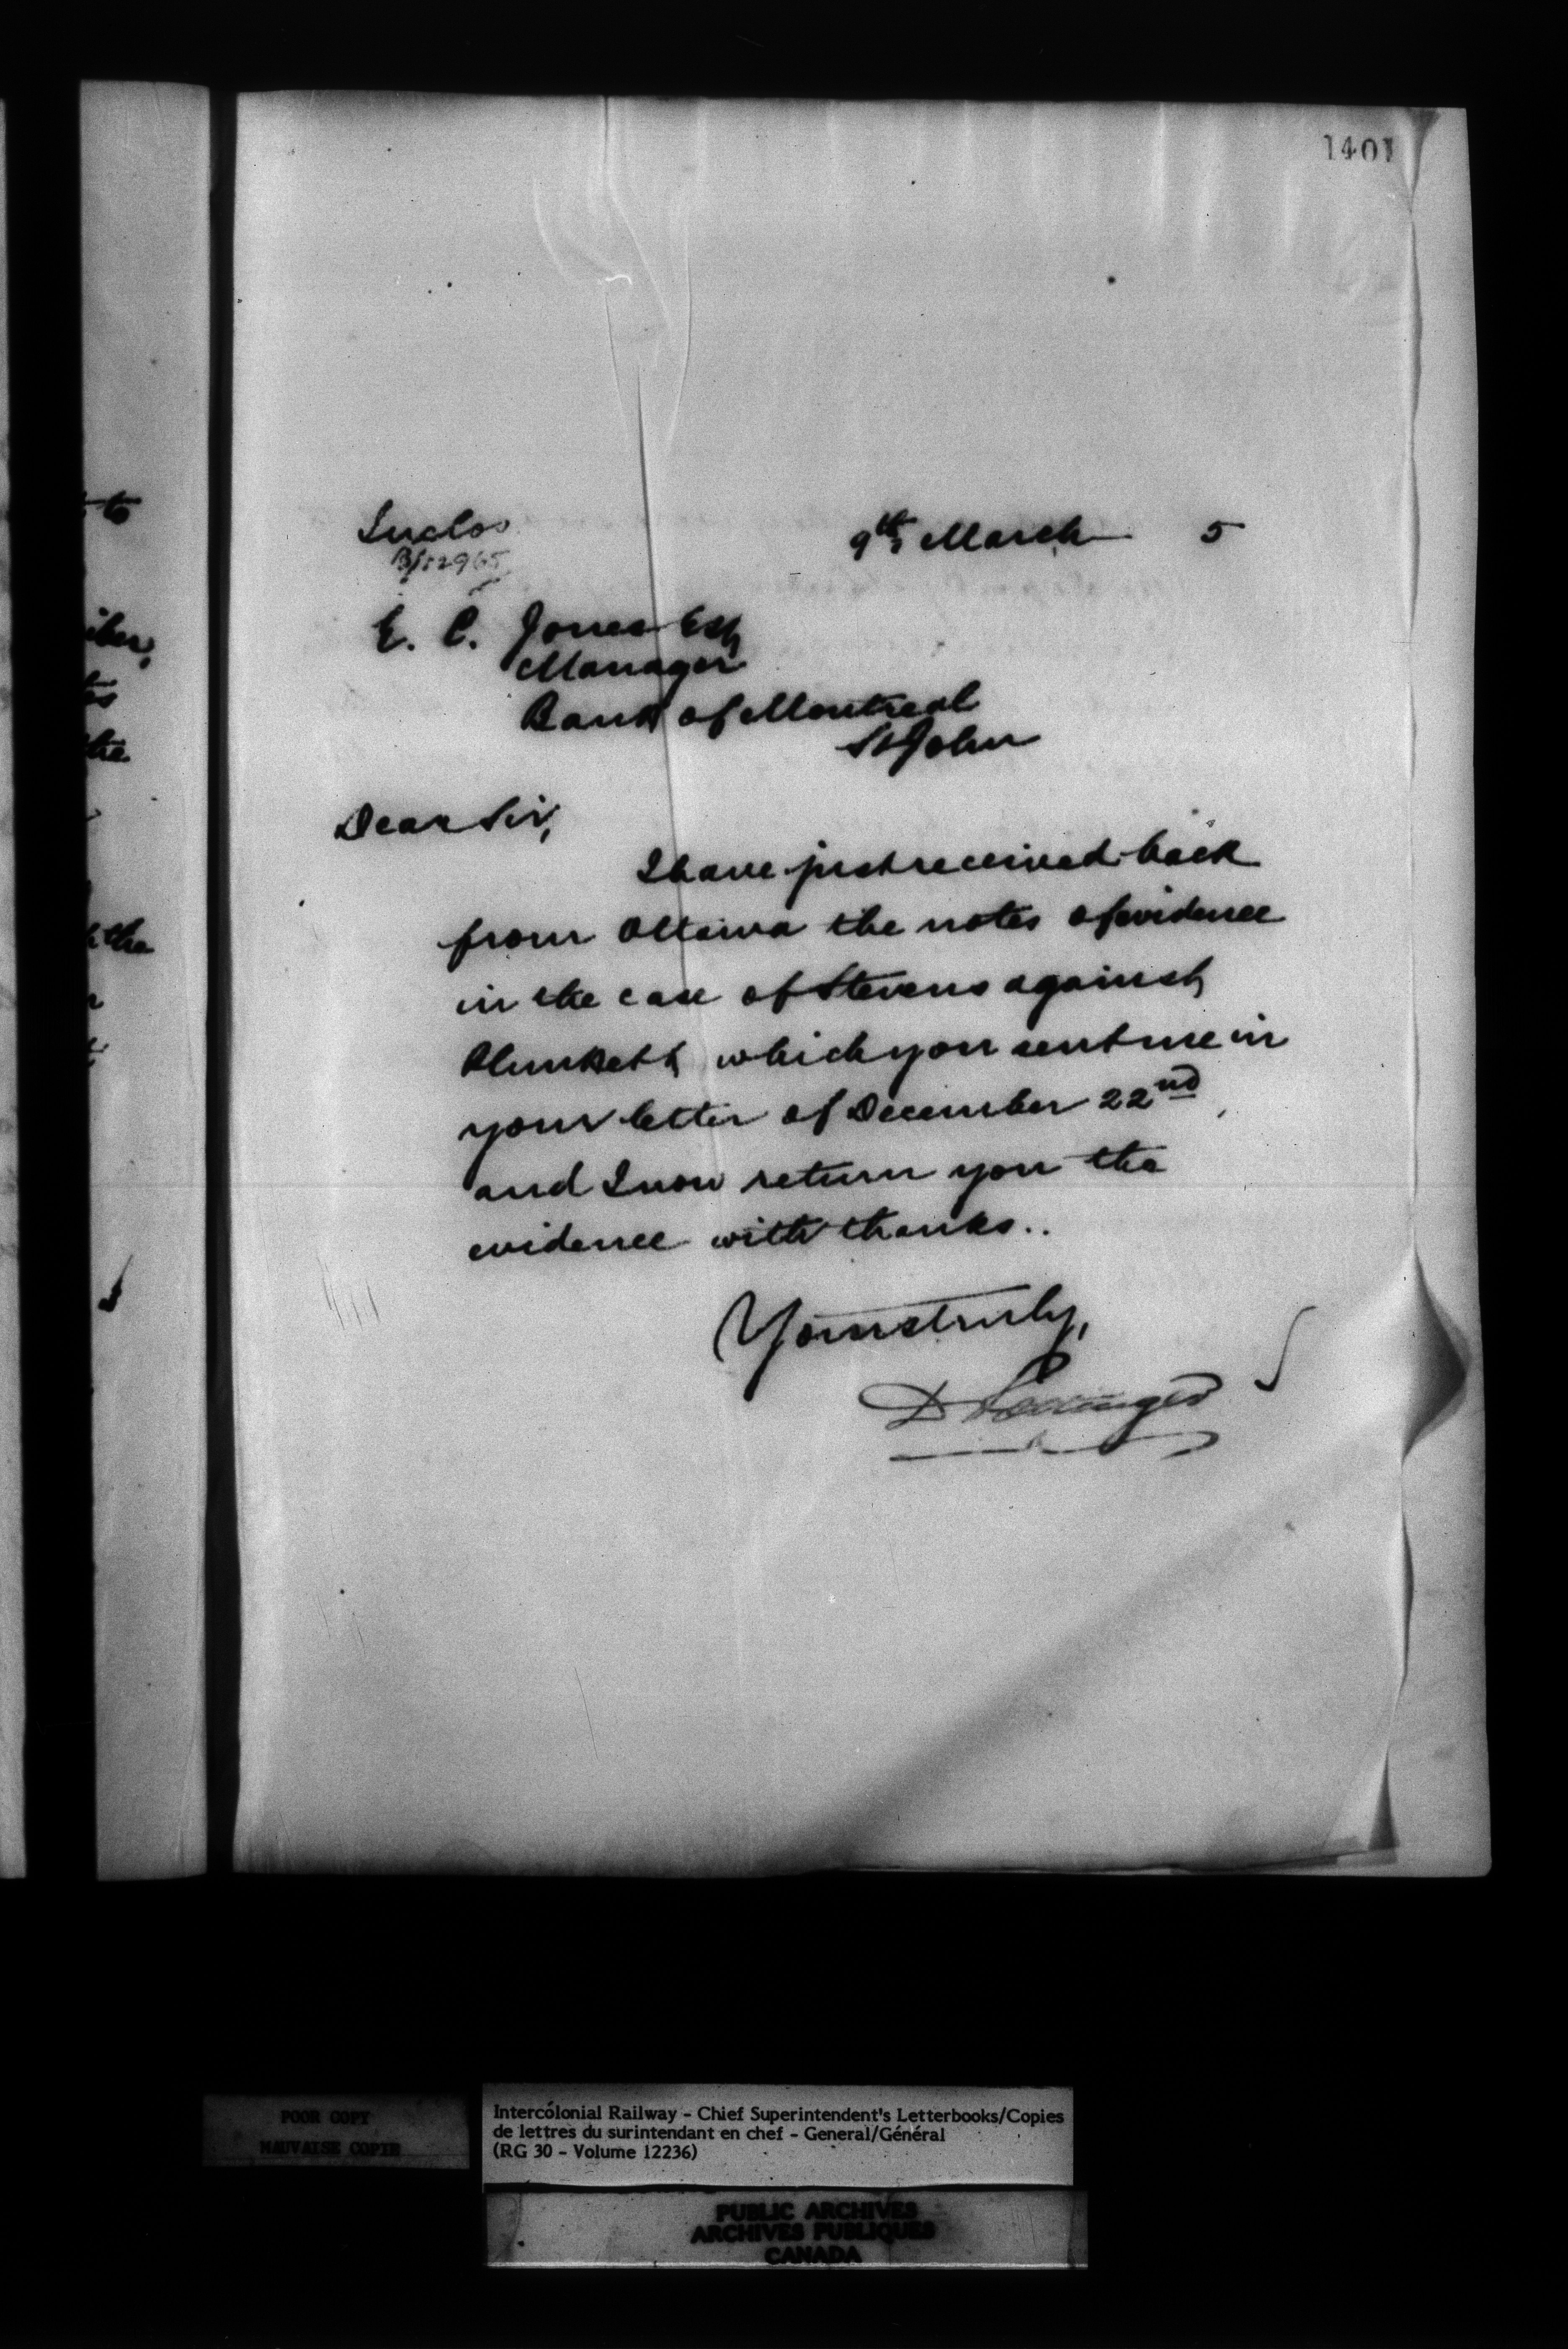 1401
Inclos
9th March 5
B/52965
E. C. Jones Esq
Manager
Bank of Montreal
St John
Dear Sir,
I have just received back
from Ottawa the notes of evidence
in the case of Stevens against
Plunkett, which you sent me in
your letter of December 22nd,
and I now return you the
evidence with thanks..
Yours truly,
D Pottinger
to
the
the
POOR COPY
MAUVAISE COPIE
Intercolonial Railway - Chief Superintendent's Letterbooks/Copies
de lettres du surintendant en chef - General/Général
(RG 30 - Volume 12236)
PUBLIC ARCHIVES
ARCHIVES PUBLIQUES
CANADA